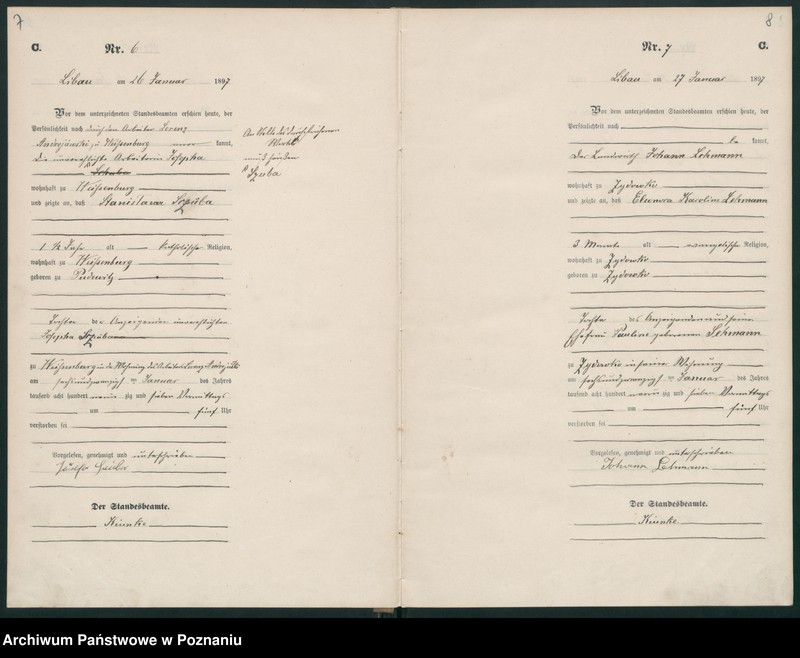 7
C.
Nr. 6
Libau am 26 Januar 1897
Vor dem unterzeichneten Standesbeamten erschien heute, der
Persönlichkeit nach durch den Arbeiter Lorenz
zu Weissenburg kannt,
die unverehelichte Arbeiterin Josepha
wohnhaft zu Weissenburg
und zeigte an, daß Stanislawa
1 ½ Jahr alt katholischer Religion,
wohnhaft zu Weissenburg
geboren zu Pudewitz
Tochter der Anzeigenden unverehelichten
Josepha
zu Weissenburg in der Wohnung des Arbeiters Lorenz
am sechsundzwanzigsten Januar des Jahres
tausend acht hundert neunzig und sieben Vormittags
um fünf Uhr
verstorben sei
Vorgelesen, genehmigt und unterschrieben
Der Standesbeamte.
An Stelle des durchstrichenen
Wortes
muß heißen
8
Nr. 7
C.
Libau am 27 Januar 1897
Vor dem unterzeichneten Standesbeamten erschien heute, der
Persönlichkeit nach
be kannt,
der Landwirth Johann Lehmann
wohnhaft zu Zydowko
und zeigte an, daß Eleonora Karoline Lehmann
3 Monate alt evangelischer Religion,
wohnhaft zu Zydowko
geboren zu Zydowko
Tochter des Anzeigenden und seiner
Ehefrau Pauline geborenen Lehmann
zu Zydowko in seiner Wohnung
am sechsundzwanzigsten Januar des Jahres
tausend acht hundert neunzig und sieben Vormittags
um fünf Uhr
verstorben sei
Vorgelesen, genehmigt und unterschrieben
Johann Lehmann
Der Standesbeamte.
Archiwum Państwowe w Poznaniu